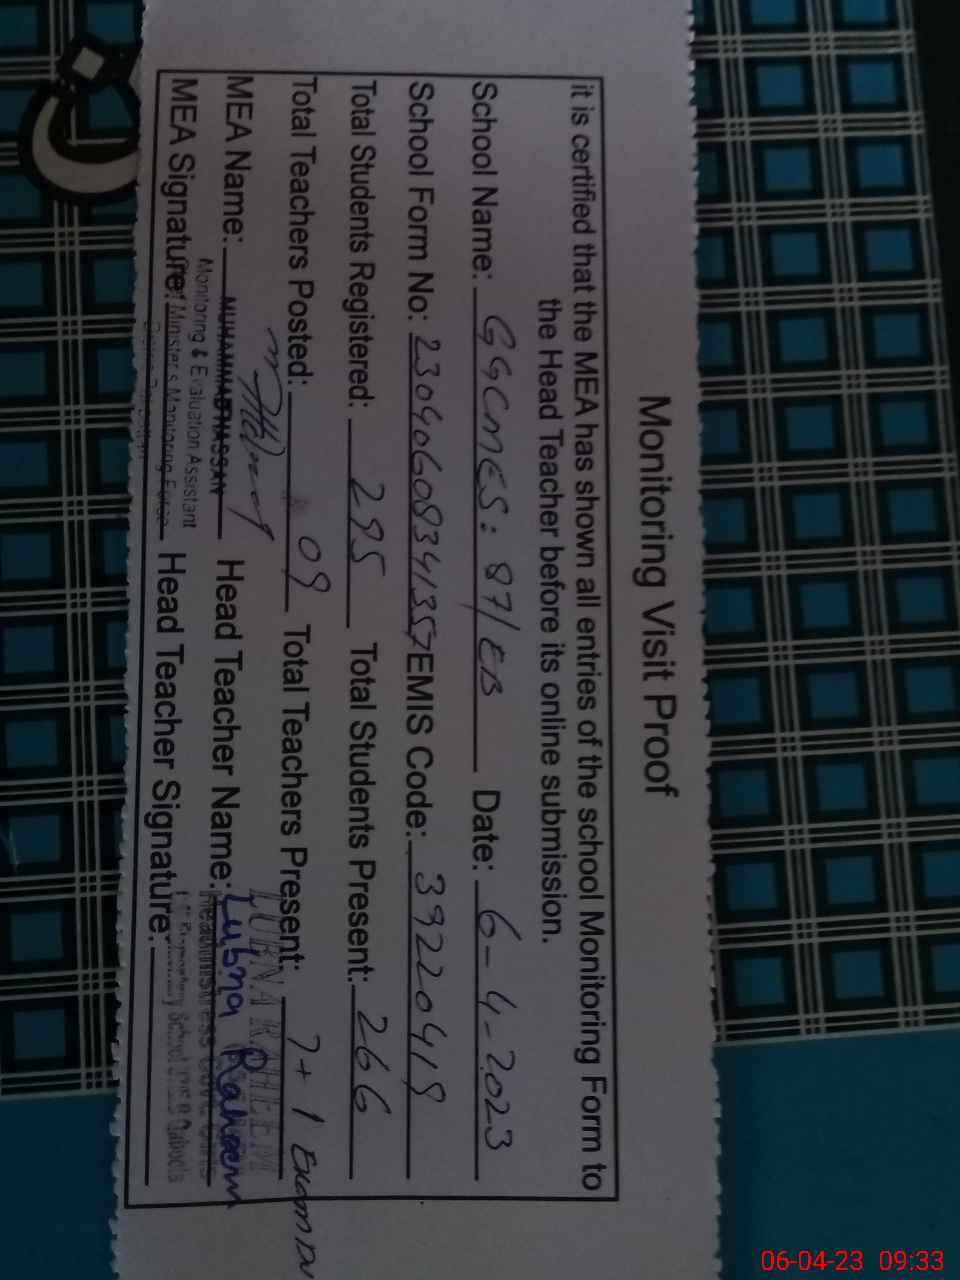 Monitoring Visit Proof
it is certified that the MEA has shown all entries of the school Monitoring Form to
the Head Teacher before its online submission.
School Name: GGCMES: 87/EB Date: 6-4-2023
School Form No: 23040608341357 EMIS Code: 39220419
Total Students Registered: 295 Total Students Present: 266
Total Teachers Posted: 09 Total Teachers Present: 7+1 Exam Du
MEA Name: MUHAMMAD HASSAN Head Teacher Name: Lubna Raheem
LUBNA RAHEEM
Monitoring & Evaluation Assistant
MEA Signature: Head Teacher Signature:
Minister's Monitoring Force
ن
06-04-23 09:33